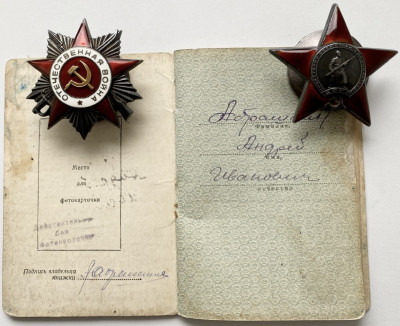 ОТЕЧЕСТВЕННАЯ ВОЙНА
Место
для
фотокарточки
Действительно
без
фотокарточки
Подпись владельца
книжки
Фамилия
Андрей
Имя
Иванович
отчество